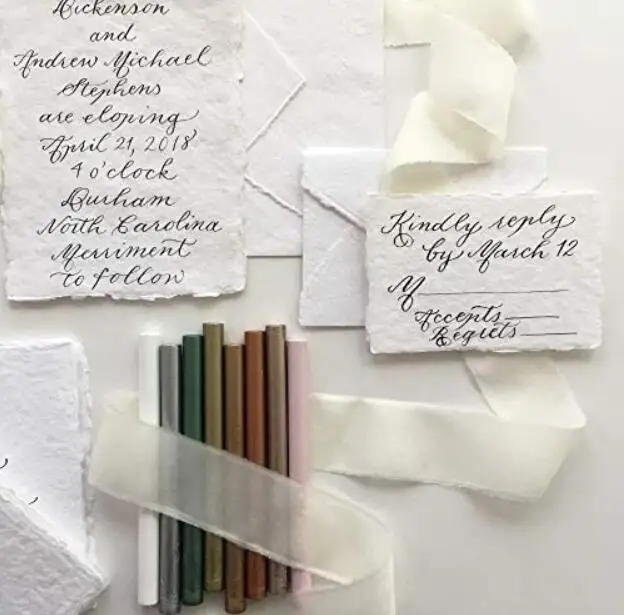 Hickenson
and
Andrew Michael
Stephens
are eloping
April 21, 2018
4 o'clock
Durham
North Carolina
Merriment
to follow
Kindly reply
by March 12
M
Accepts
Regrets